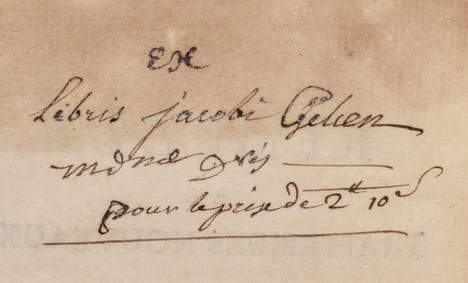 Ex
Libris jacobi Gehen
mdnæ Dris
pour le prix de 2ᵗᵗ 10ˢ